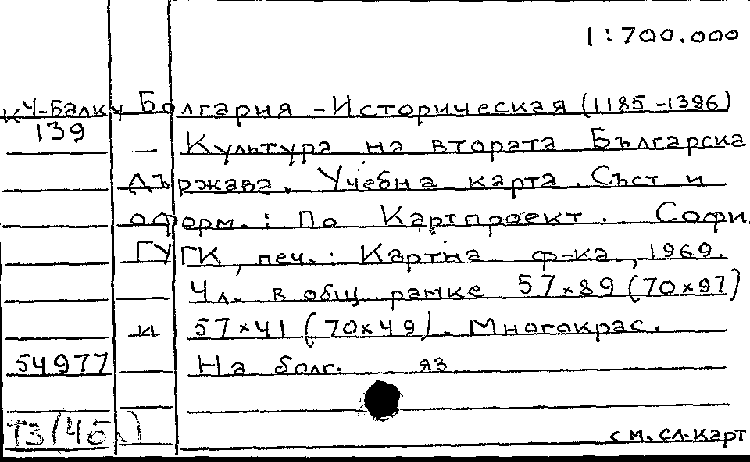 1:700.000
КЧ-Балк Болгария - Историческая (1185-1396)
139 - Культура на втората Българска
Държава. Учебна карта. Със т и
оформ.: По Картпроект. Софи
ГУГК, печ.: Картна ф-ка, 1969.
4л. в общ рамке 57×89 (70×97)
и 57×41 (70×49). Многокрас.
54977 На болг. яз
Т3(4Б)
см. сл. карт